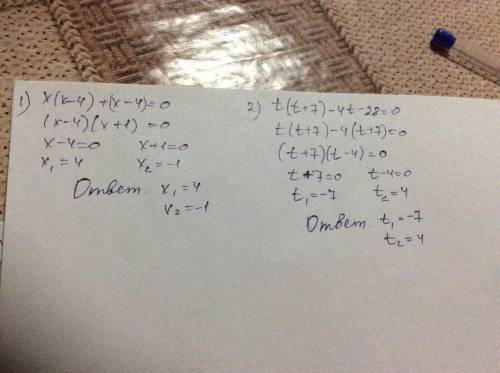 1) x(x-4)+(x-4)=0
(x-4)(x+1)=0
x-4=0 x+1=0
x₁=4 x₂=-1
Ответ. x₁=4
x₂=-1
2) t(t+7)-4t-28=0
t(t+7)-4(t+7)=0
(t+7)(t-4)=0
t+7=0 t-4=0
t₁=-7 t₂=4
Ответ. t₁=-7
t₂=4